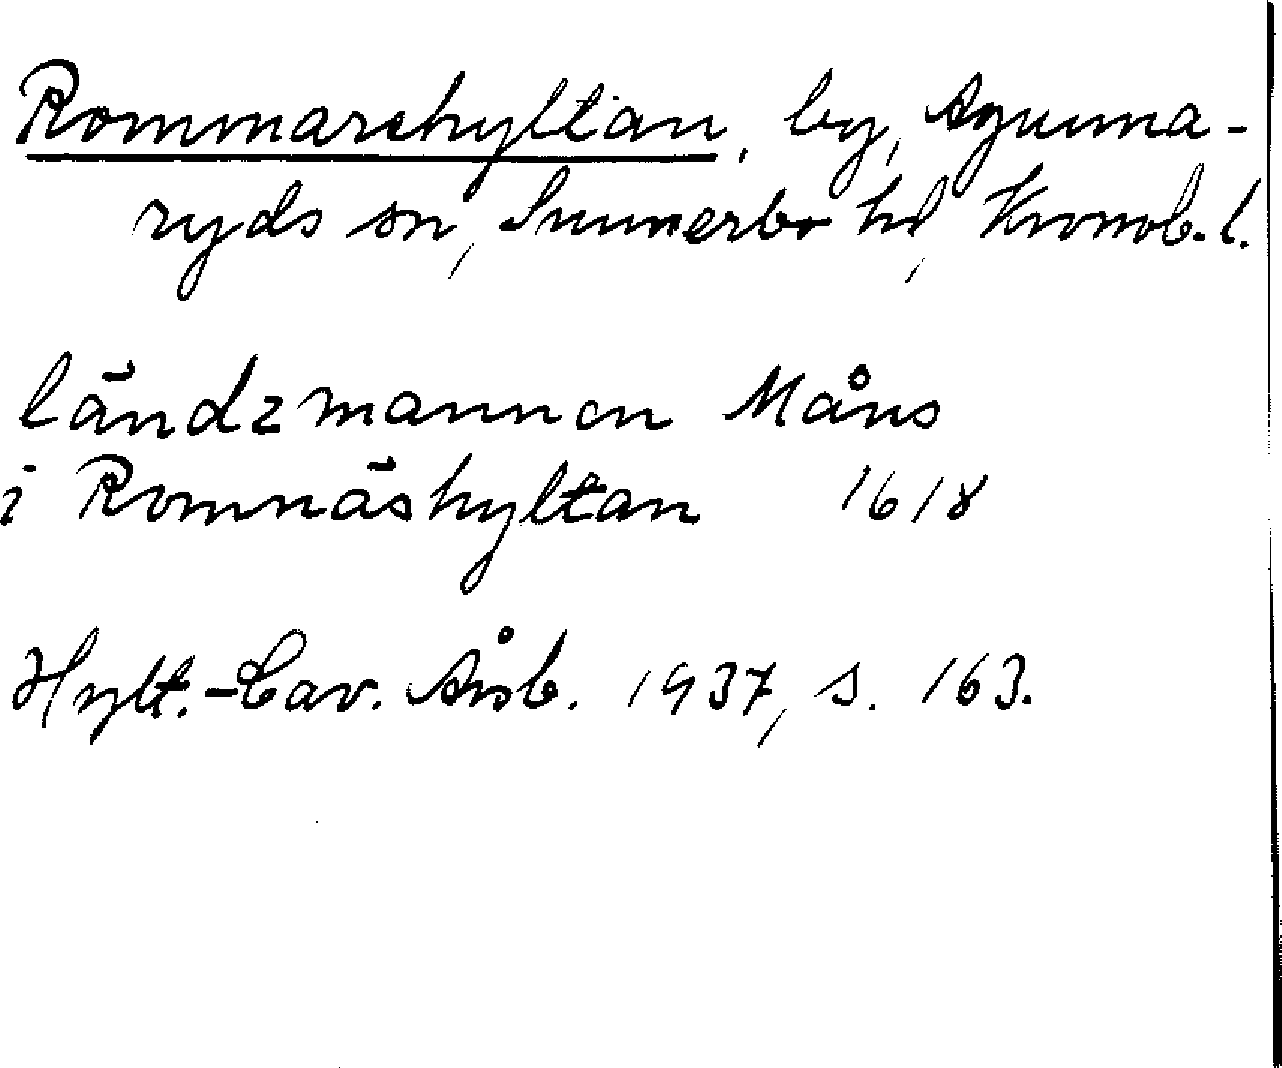 Rommarehyltan, by, Agunna-
ryds sn, Sunnerbo hd, Kronob. l.
ländzmannen Måns
i Romnäshyltan 1618
Hylt.-Cav. Årsb. 1937, s. 163.